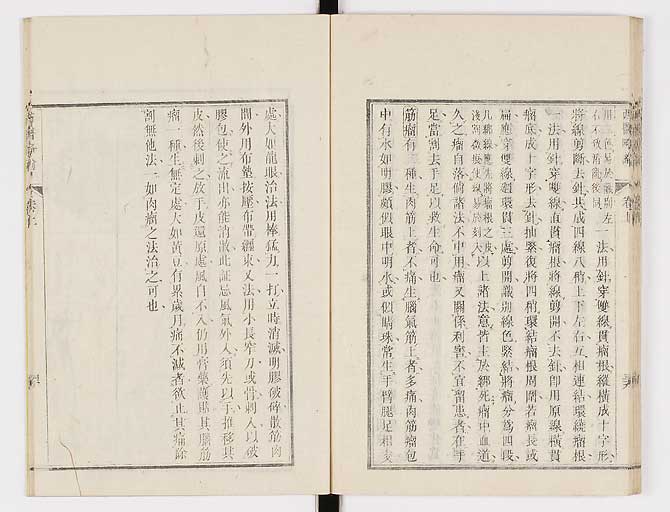 用二色易於識別左
右不致淆亂後同一法用針穿雙線貫瘤根縱橫成十字形、
將線剪斷去針共成四線八稍上下左右互相連結環纏瘤根、
一法用針穿雙線直貫瘤根將線剪開不去針卽用原線橫貫
瘤底成十字形去針抽緊復將四稍環結瘤根周圍若瘤長或
扁應穿雙線迴環貫三處剪開識別線色緊結將瘤分爲四段、
凡縛線應先將瘤根之皮
以上諸法意皆主於綁死瘤中血道、
久之瘤自落倘諸法不中用瘤又關係利害不宜留患者在手
足當割去手足以救生命可也
筋瘤有二種生肉筋上者不痛生腦氣筋上者多痛肉筋瘤包
中有水如明膠頗似眼中明水或似睛珠常生手臂腿足相交
處大如龍眼治法用棒猛力一打立時消滅明膠破碎散筋肉
間外用布墊按壓布帶纏束又法用小長窄刀或骨刺入以破
膠包使之流出亦能消散此証忌風氣外入須先以手推移其
皮然後刺之放手皮還原處風自不入仍用膏藥護貼其腦筋
瘤一種生無定處大如黃豆有累歲月痛不減者欲止其痛除
割無他法一如肉瘤之法治之可也